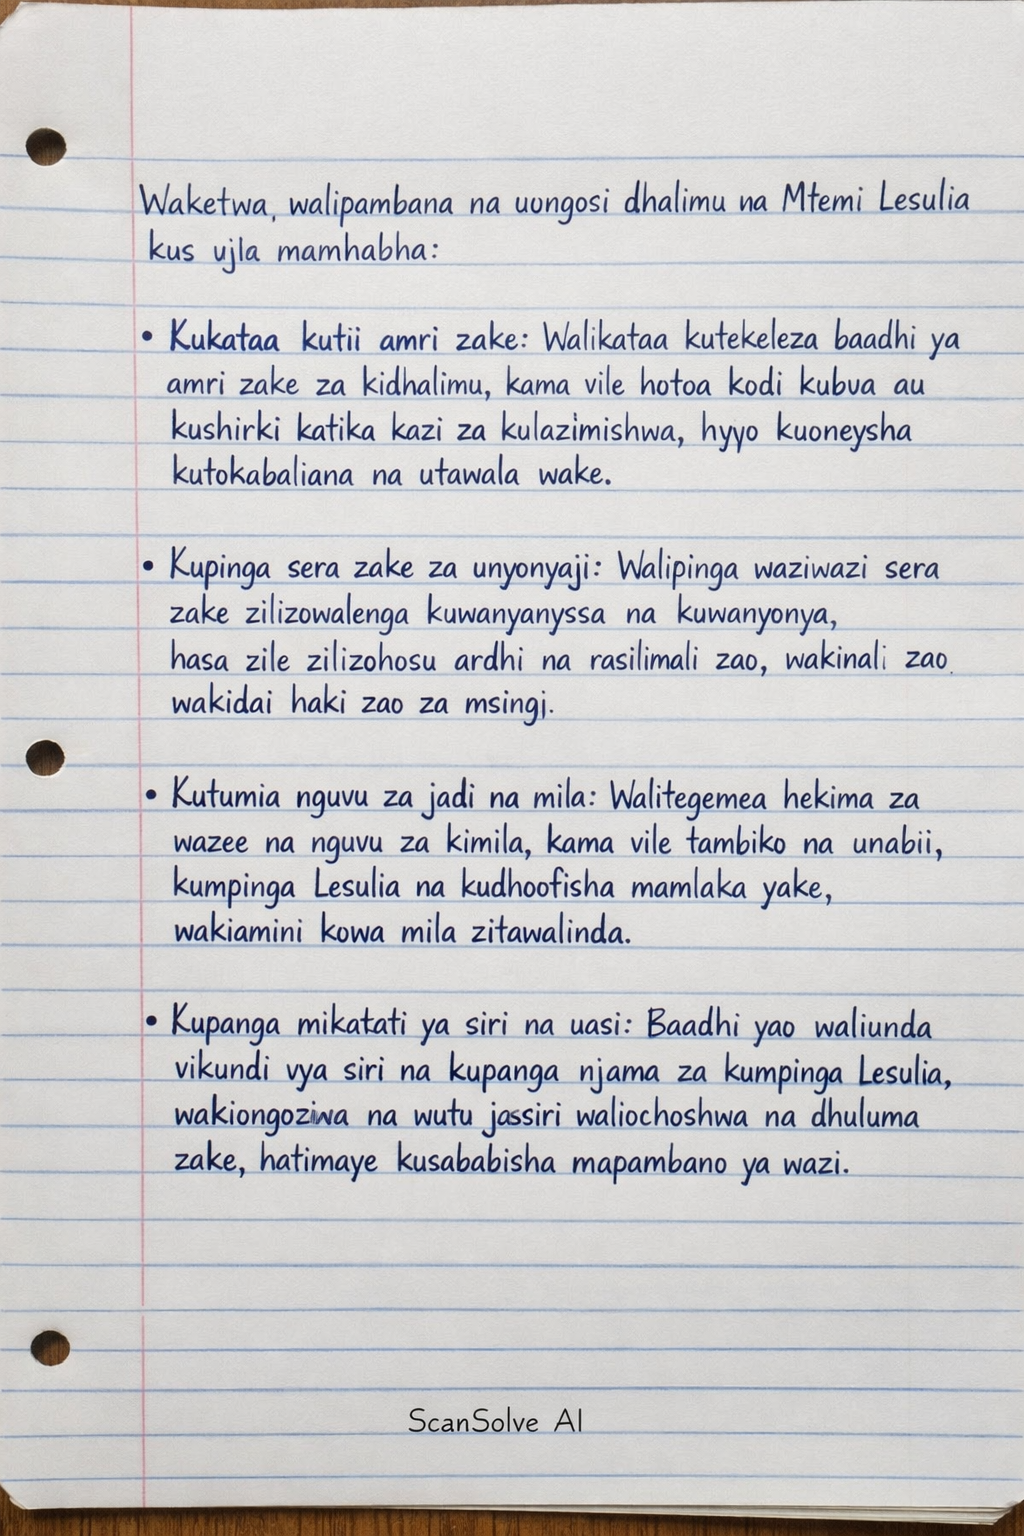 Waketwa, walipambana na uongosi dhalimu na Mtemi Lesulia
kus ujla mamhabha:
• Kukataa kutii amri zake: Walikataa kutekeleza baadhi ya
amri zake za kidhalimu, kama vile hotoa kodi kubva au
kushirki katika kazi za kulazimishwa, hyyo kuoneysha
kutokabaliana na utawala wake.
• Kupinga sera zake za unyonyaji: Walipinga waziwazi sera
zake zilizowalenga kuwanyanyssa na kuwanyonya,
hasa zile zilizohosu ardhi na rasilimali zao, wakinali zao.
wakidai haki zao za msingi.
• Kutumia nguvu za jadi na mila: Walitegemea hekima za
wazee na nguvu za kimila, kama vile tambiko na unabii,
kumpinga Lesulia na kudhoofisha mamlaka yake,
wakiamini kowa mila zitawalinda.
• Kupanga mikatati ya siri na uasi: Baadhi yao waliunda
vikundi vya siri na kupanga njama za kumpinga Lesulia,
wakiongoziwa na wutu jassiri waliochoshwa na dhuluma
zake, hatimaye kusababisha mapambano ya wazi.
ScanSolve AI